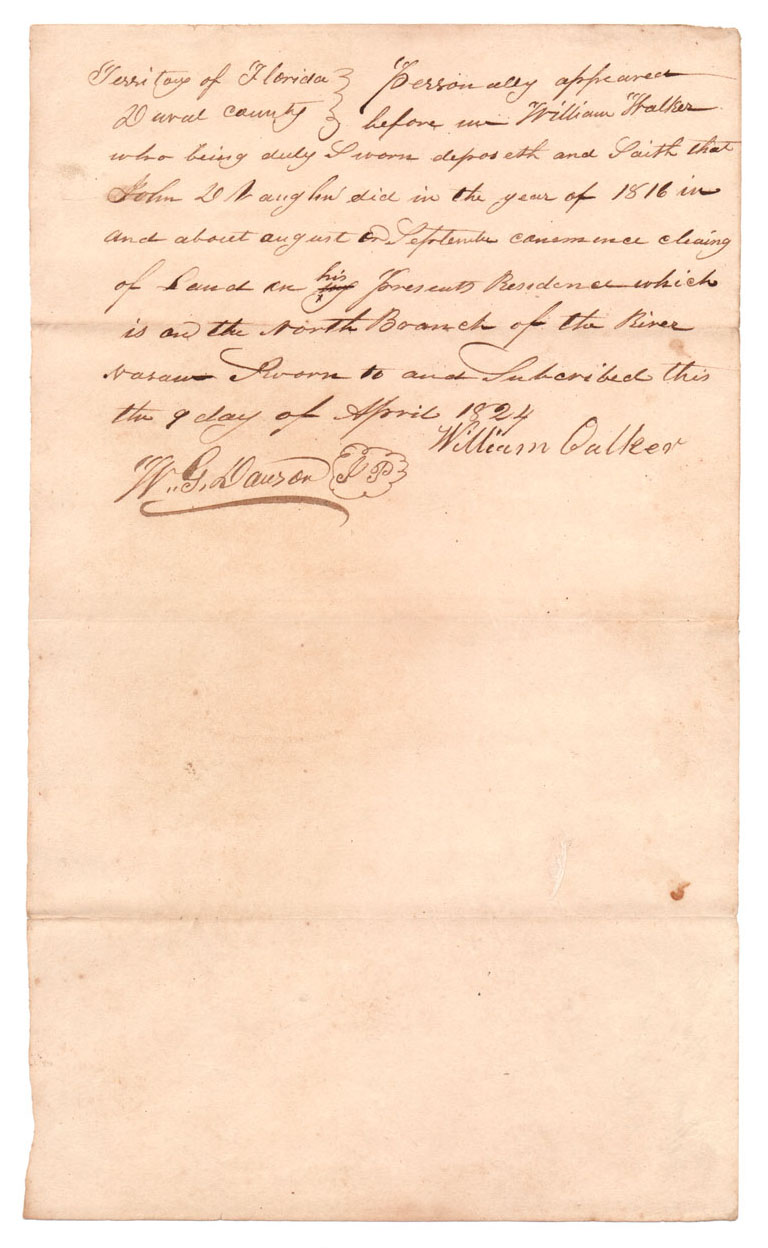 Territory of Florida } Personally appeared
Duval county } before me William Walker
who being duly Sworn deposeth and Saith that
John D Vaughn did in the year of 1816 in
and about august or Septembe commence clearing
of Land on his presents Residence which
is on the North Branch of the River
Nasaw Sworn to and Subcribed this
the 9 day of April 1824
William Oalker
W. G. Dawson JP